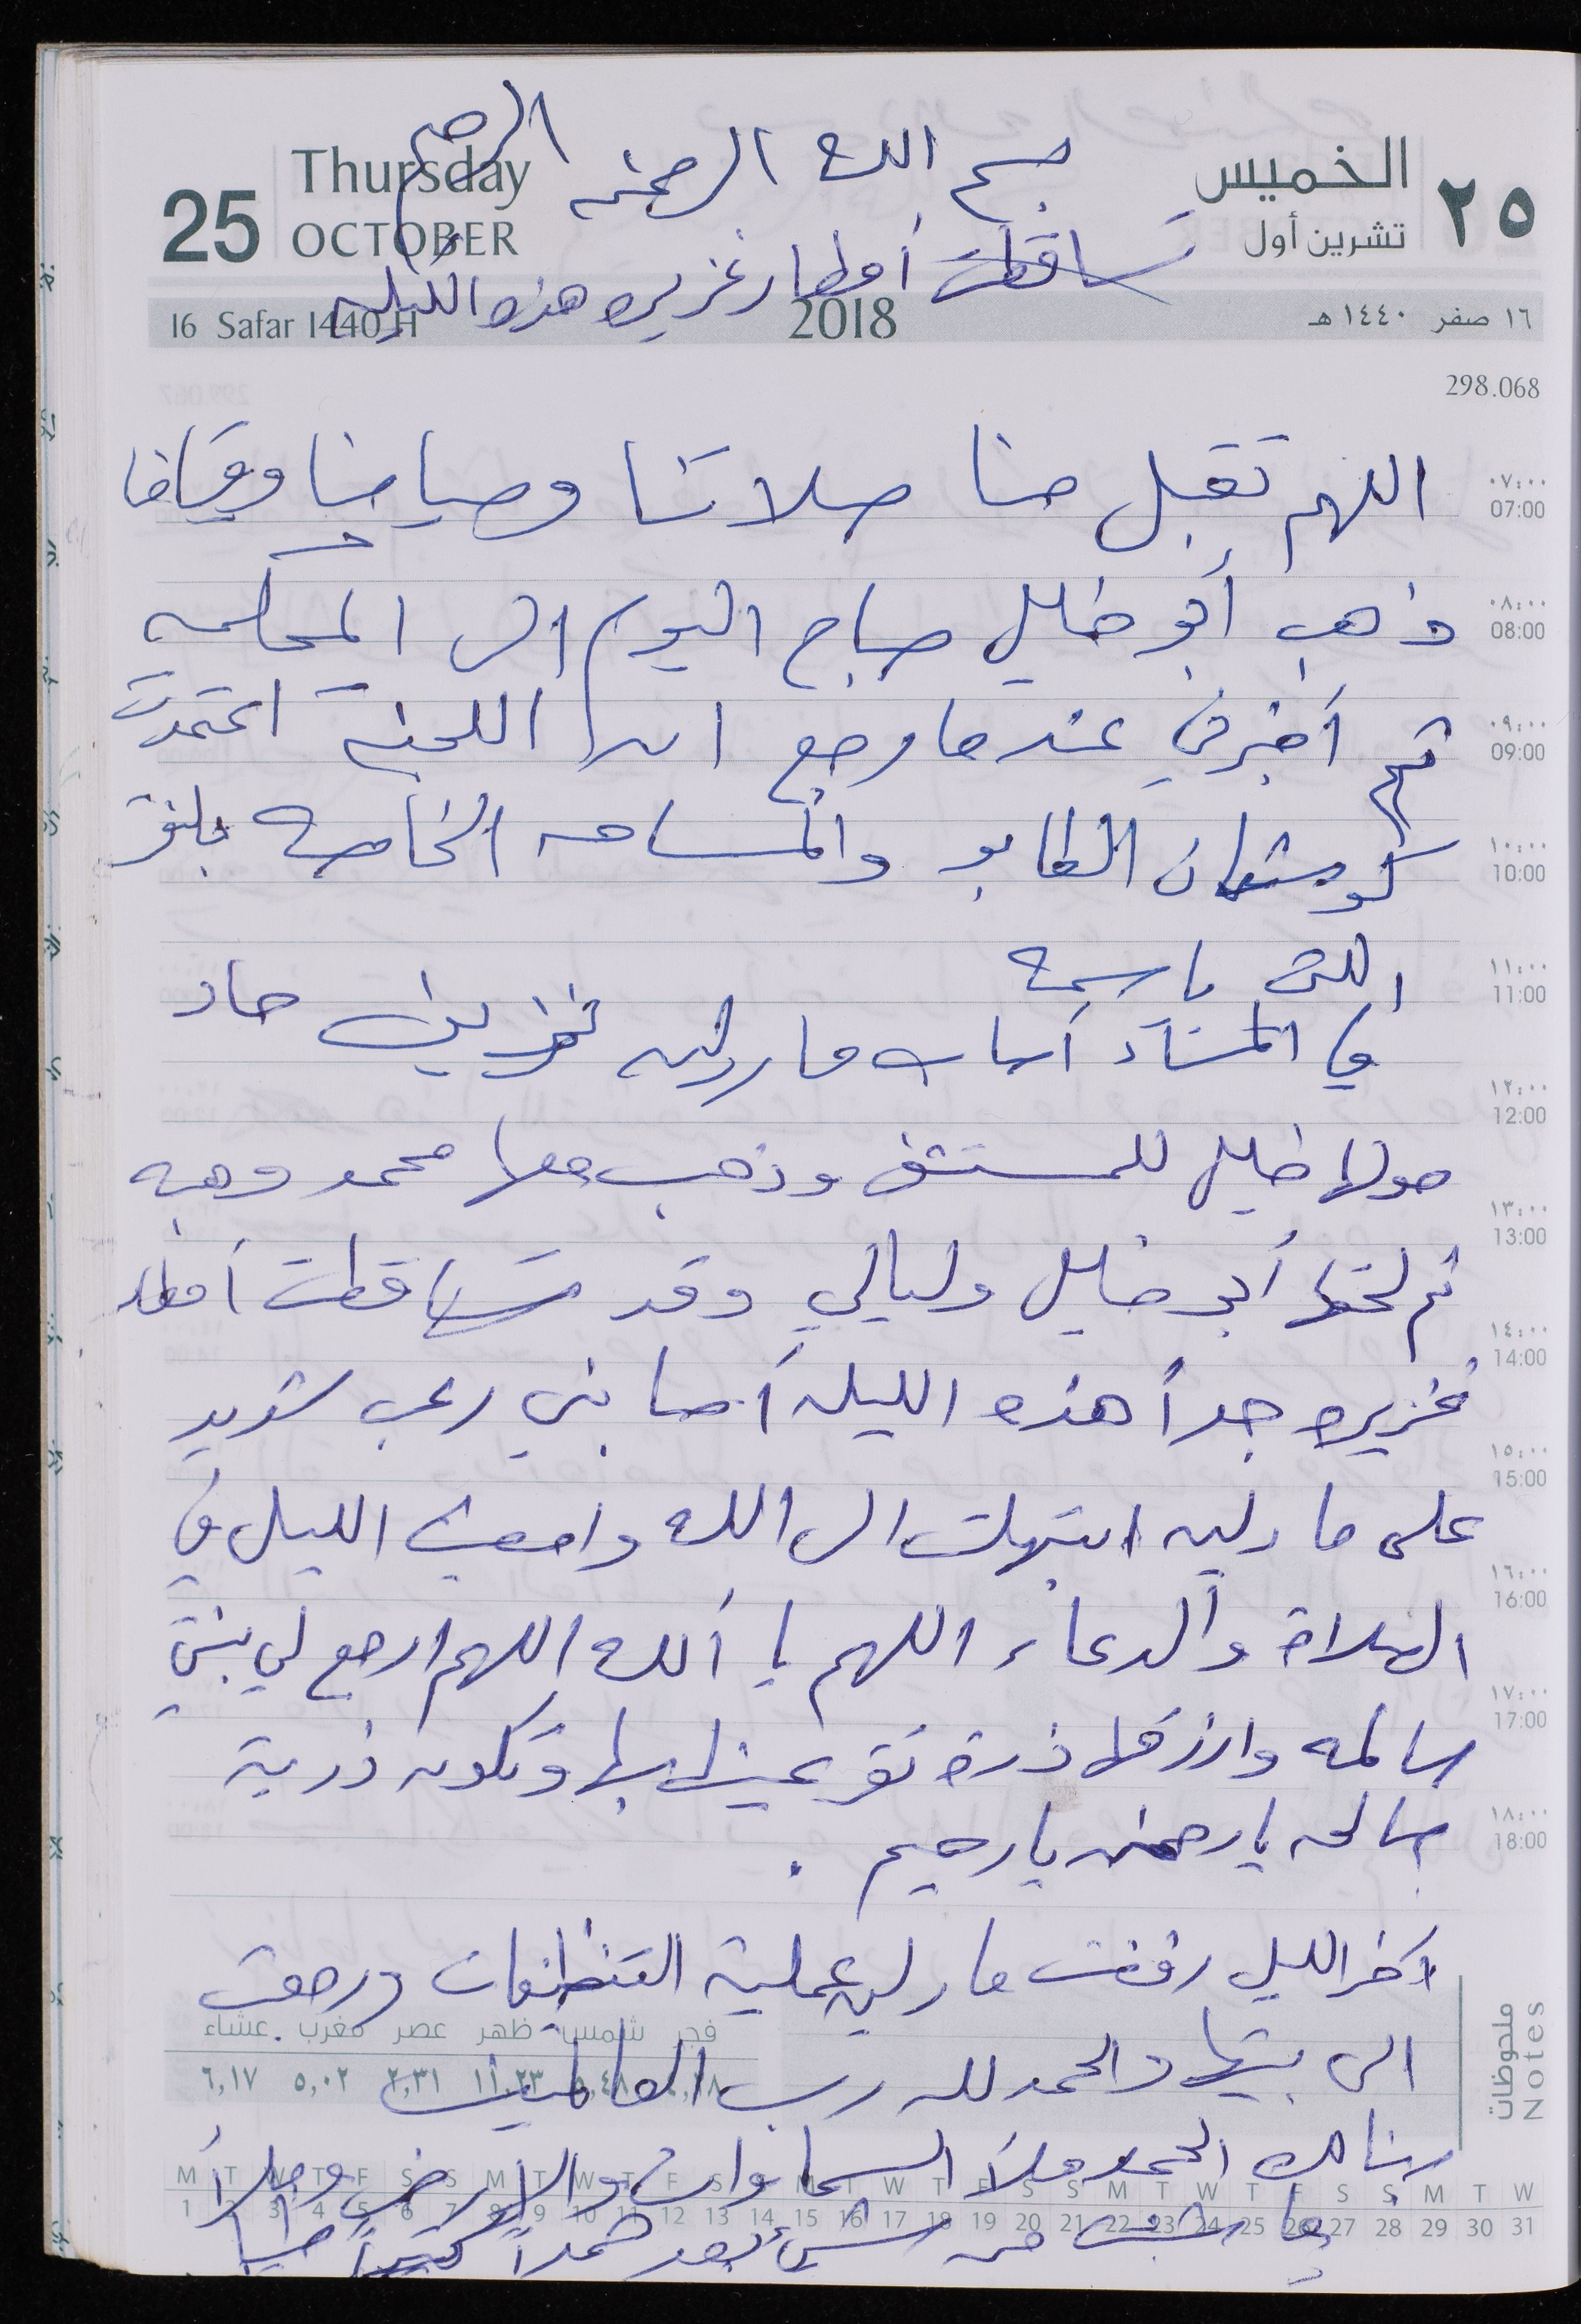 بسم الله الرحمن الرحيم
25 Thursday OCTOBER
الخميس ٢٥ تشرين أول
تساقطت أمطار غزيره هذه الليله
16 Safar 1440 H 2018 ١٦ صفر ١٤٤٠ هـ
298.068
اللهم تقبل منا صلاتنا وصيامنا وقيامنا
٠٧:٠٠ 07:00
ذهب أبو خليل صباح اليوم الى المحكمه
٠٨:٠٠ 08:00
ثم أخبرني عندما رجع ان اللجنة اعتمدت
٠٩:٠٠ 09:00
كوشان الطابو والمساحه الخاصه
١٠:٠٠ 10:00
باسمه
١١:٠٠ 11:00
في المساء أصاب مارلين نزيف حاد
١٢:٠٠ 12:00
حولها خليل للمستشفى وذهب معها محمد وهبه
١٣:٠٠ 13:00
ثم لحقها أبو خليل وليالي وقد تساقطت أمطار
١٤:٠٠ 14:00
غزيره جداً هذه الليله أصابني رعب شديد
١٥:٠٠ 15:00
على مارلين ابتهلت الى الله وامضيت الليل في
١٦:٠٠ 16:00
الصلاة والدعاء اللهم يا ألله اللهم ارجع لي بنتي
١٧:٠٠ 17:00
سالمه وارزقها ذرية تقر عينها بها وتكون ذرية
صالحه يا رحمن يا رحيم .
١٨:٠٠ 18:00
آخر الليل رفضت مارلين عملية التنظيفات ورجعت
ملحوظات Notes
فجر شمس ظهر عصر مغرب عشاء
الى بيتها والحمد لله رب العالمين
١١,٢٣ ٢,٣١ ٥,٠٢ ٦,١٧
ربنا لك الحمد ملأ السماوات والارض وملأ
M T W T F S S M T W T F S S M T W T F S S M T W T F S S M T W
1 2 3 4 5 6 7 8 9 10 11 12 13 14 15 16 17 18 19 20 21 22 23 24 25 26 27 28 29 30 31
ما شئت من شيء بعد حمداً كثيراً طيبا